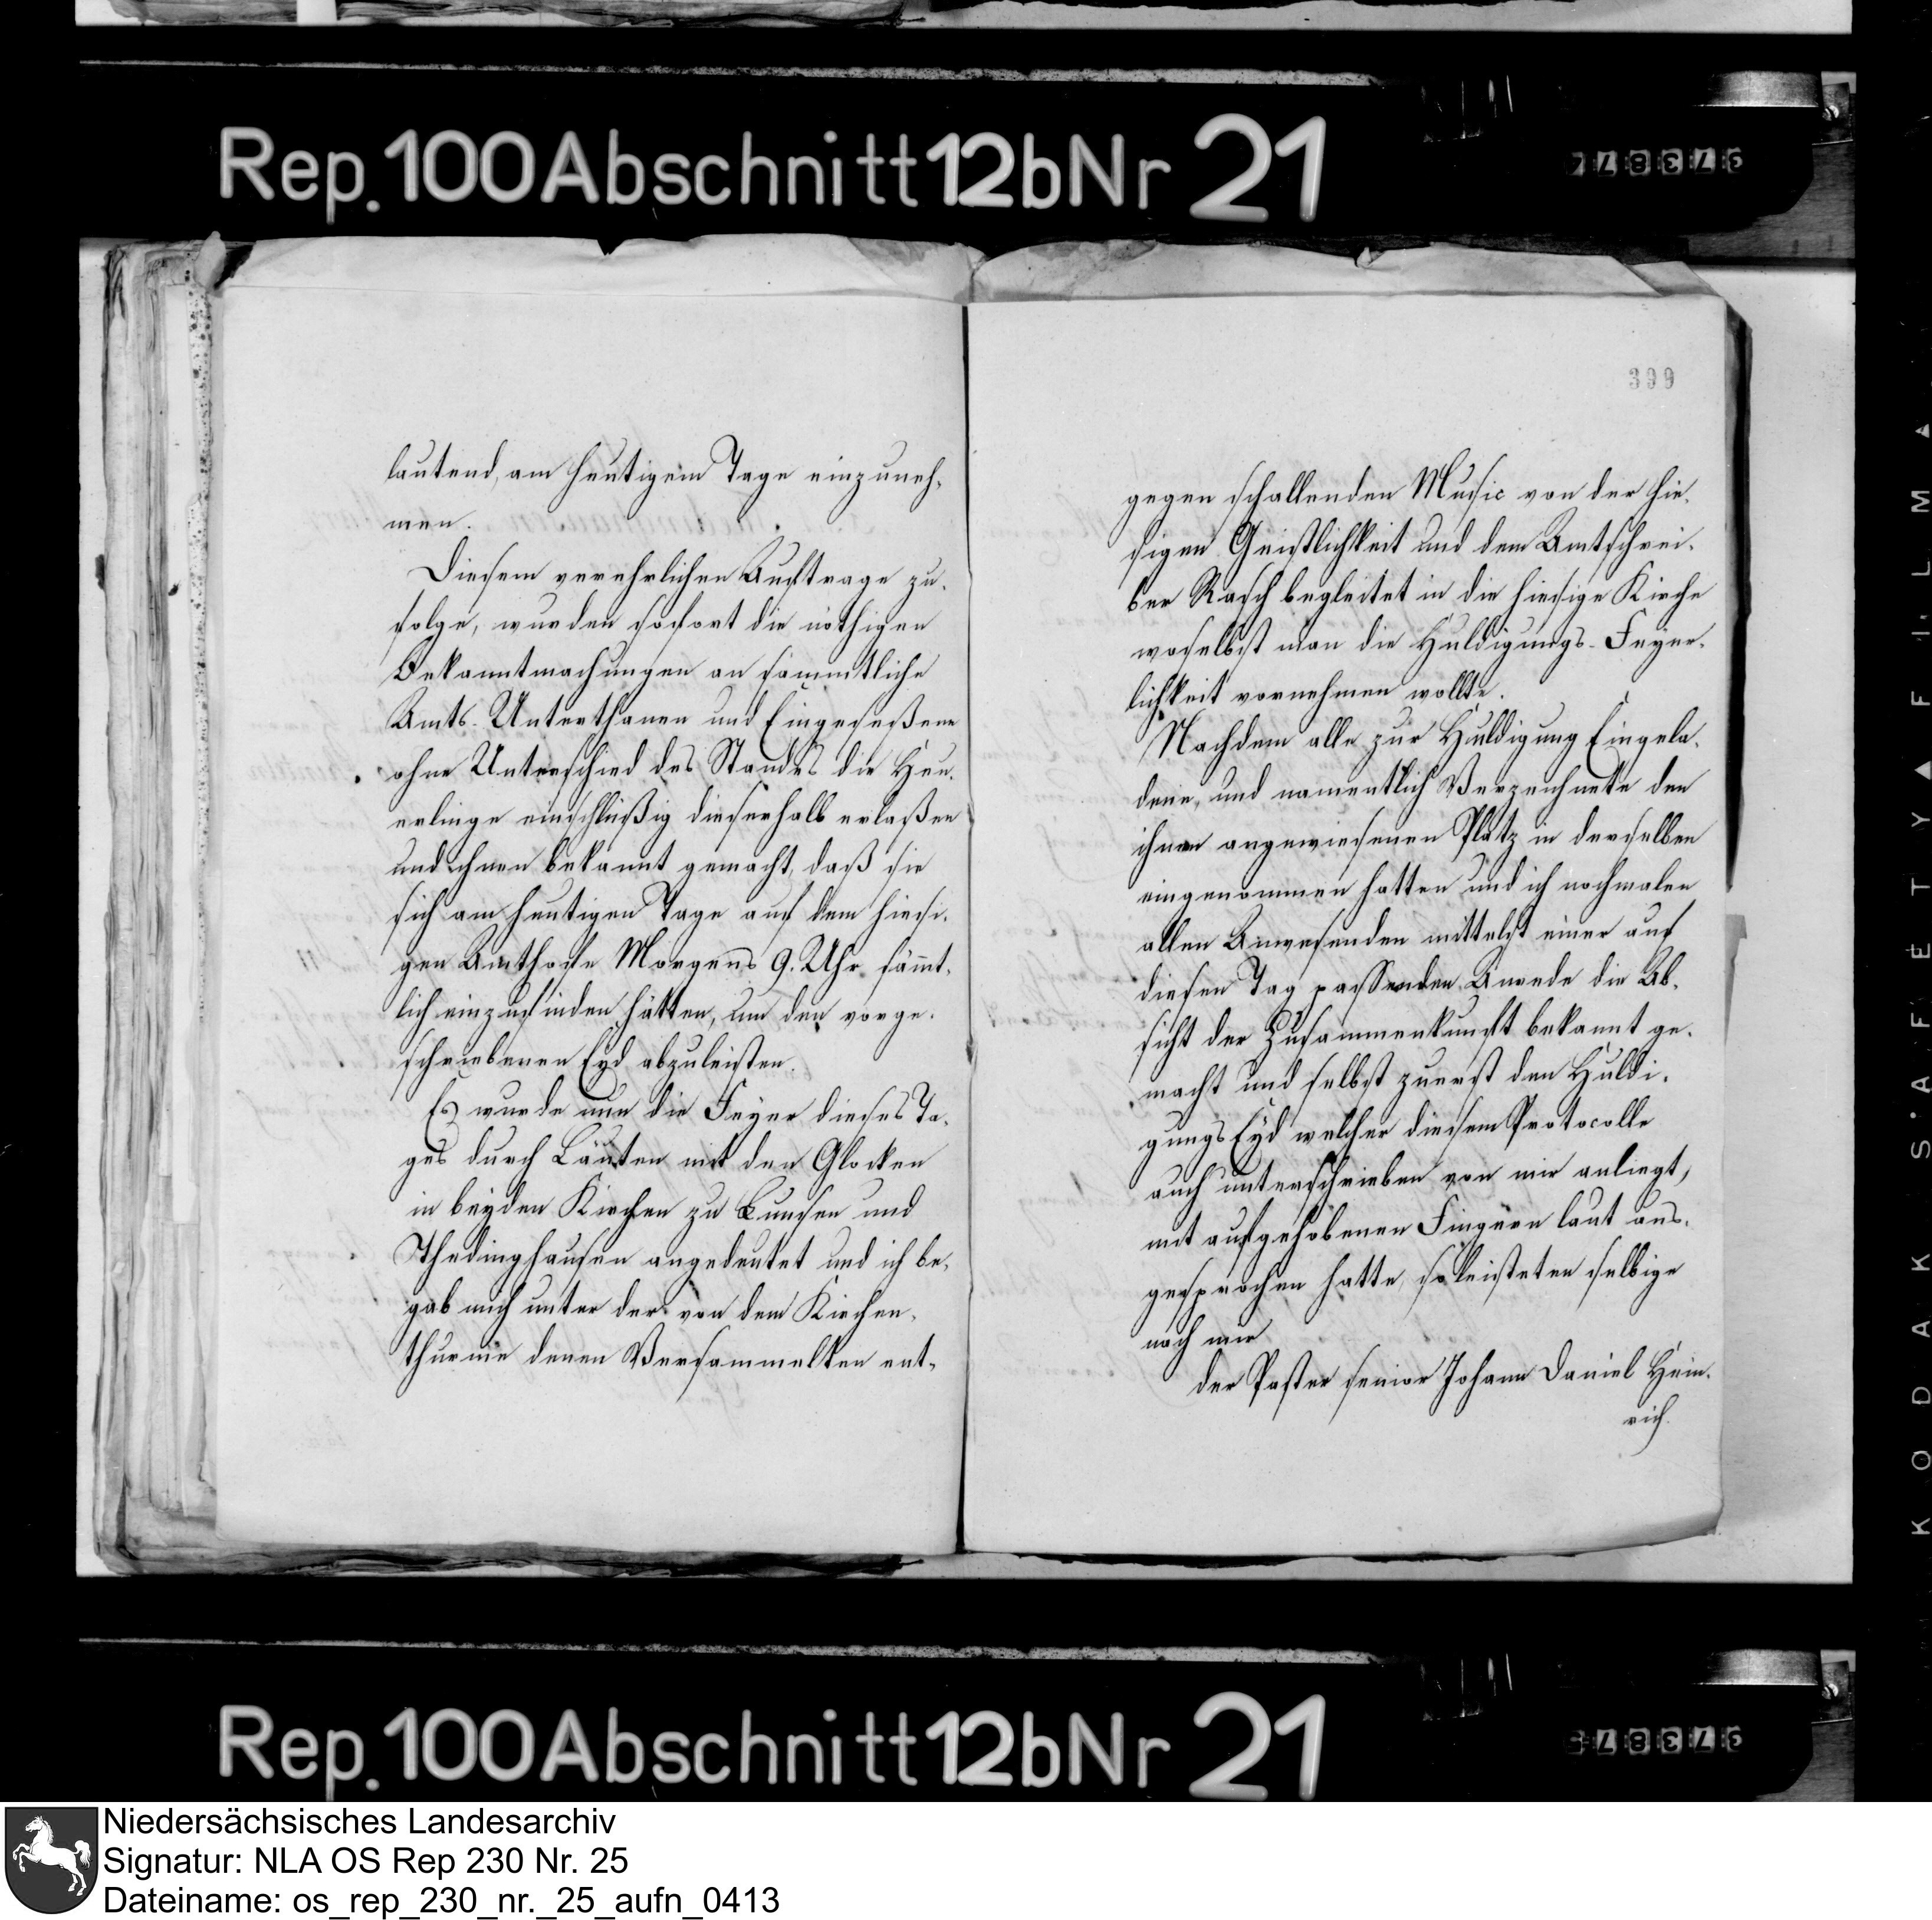 Rep. 100 Abschnitt 12b Nr 21
lautend, am heutigem Tage einzuneh-
men.
Diesem verehrlichen Auftrage zu-
folge, wurden sofort die nöthigen
Bekanntmachungen an sämmtliche
Amts-Unterthanen und Eingeseßene
ohne Unterschied des Standes die Heu-
erlinge einschlüßig dieserhalb erlaßen
und ihnen bekannt gemacht, daß sie
sich am heutigen Tage auf dem hiesi-
gen Amthofe Morgens 9. Uhr sämt-
lich einzufinden hätten, um den vorge-
schriebenen Eyd abzuleisten.
Es wurde nun die Feyer dieses Ta-
ges durch Läuten mit den Glocken
in beyden Kirchen zu Lunsen und
Thedinghausen angedeutet und ich be-
gab mich unter der von dem Kirchen-
thurme denen Versammelten ent-
399
gegen schallenden Music von der hie-
sigen Geistlichkeit und dem Amtschrei-
ber Rasch begleitet in die hiesige Kirche
woselbst man die Huldigungs-Feyer-
lichkeit vornehmen wollte.
Nachdem alle zur Huldigung Eingela-
dene, und namentlich Verzeichnete den
ihnen angewiesenen Platz in derselben
eingenommen hatten und ich nochmalen
allen Anwesenden mittelst einer auf
diesen Tag passenden Anrede die Ab-
sicht der Zusammenkunft bekannt ge-
macht und selbst zuerst den Huldi-
gungs Eyd welcher diesem Protocolle
auch unterschrieben von mir anliegt,
mit aufgehobenen Fingern laut aus-
gesprochen hatte, so leisteten selbige
nach mir
der Pastor senior Johann Daniel Hein-
rich.
Rep. 100 Abschnitt 12b Nr 21
KODAK SAFETY FILM
Niedersächsisches Landesarchiv
Signatur: NLA OS Rep 230 Nr. 25
Dateiname: os_rep_230_nr._25_aufn_0413